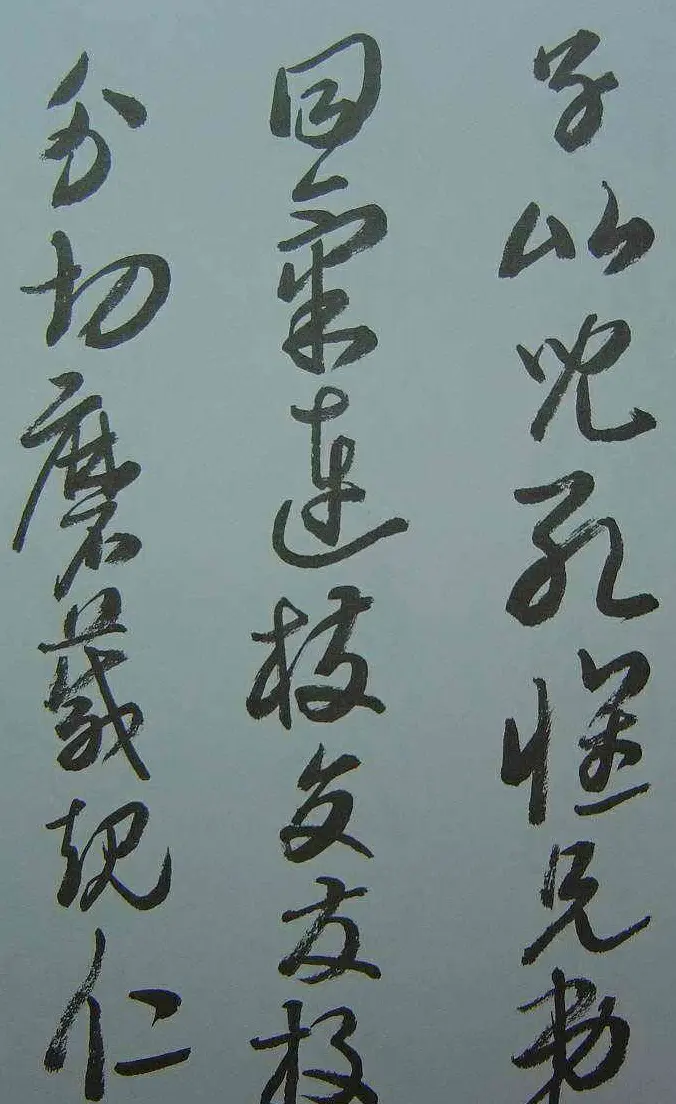 子比兒孔懷兄弟
同氣連枝交友投
分切磨箴規仁